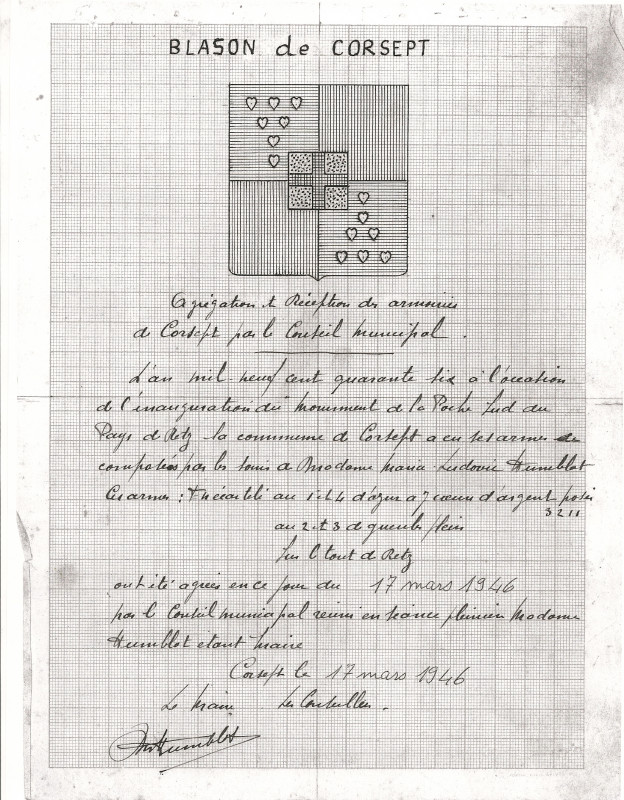 BLASON de CORSEPT
Agrégation & Réception des armoiries
de Corsept par le Conseil Municipal.
L'an mil neuf cent quarante six à l'occasion
de l'inauguration du Monument de la Poche Sud du
Pays de Retz la commune de Corsept a eu ses armes
composées par les soins de Madame Maria Ludovic Humblot
Ces armes : écartelé au 1 et 4 d'azur à 7 coeurs d'argent posés
3 2 1 1
au 2 et 3 de gueules plein
sur le tout de Retz
ont été agréées en ce jour du 17 mars 1946
par le Conseil municipal réuni en séance plénière Madame
Humblot étant Maire
Corsept le 17 mars 1946
Le Maire Les Conseillers.
Humblot